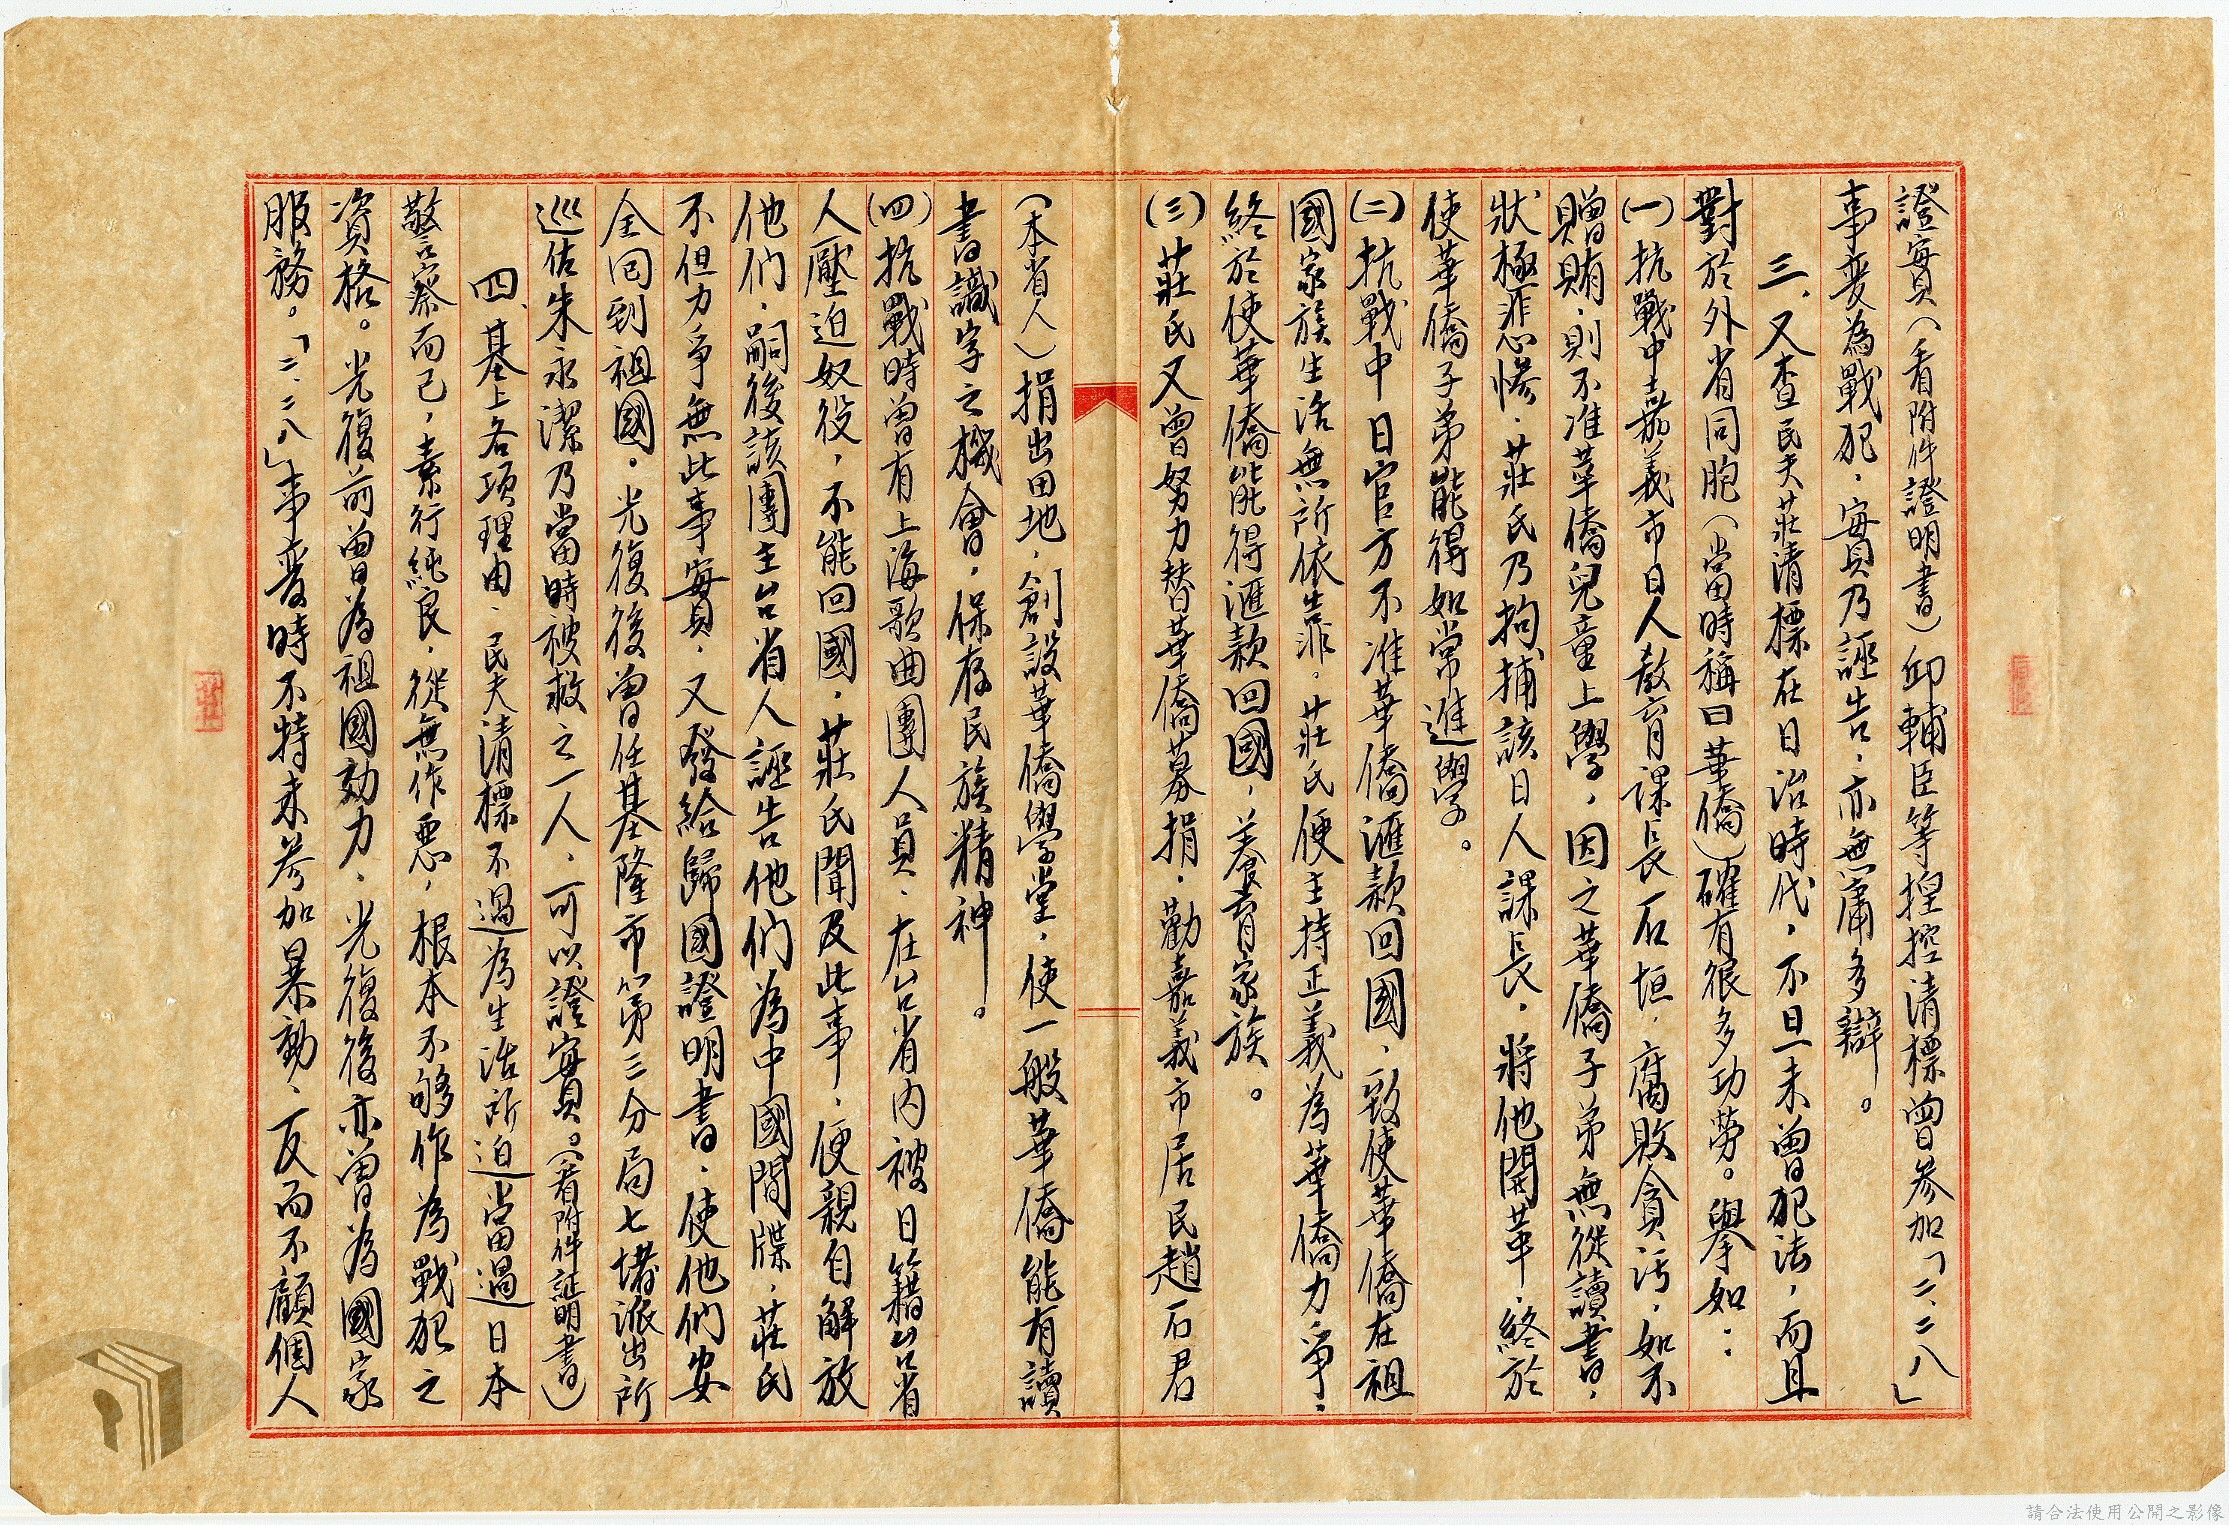 證實（看附件證明書）邱輔臣等捏控清標曾參加「二、二八」
事変為戰犯，實乃誣告，亦無庸多辯。
三、又查民夫莊清標在日治時代，不但未曾犯法，而且
對於外省同胞（當時稱曰華僑）確有很多功勞。舉如：
(一)抗戰中嘉義市日人教育課長石垣，腐敗貪污，如不
贈賄，則不准華僑兒童上學，因之華僑子弟無從讀書，
狀極悲慘，莊氏乃拘捕該日人課長，將他開革，終於
使華僑子弟能得如常進學。
(二)抗戰中日官方不准華僑滙款回國，致使華僑在祖
國家族生活無所依靠。莊氏便主持正義為華僑力爭，
終於使華僑能得滙款回國，养育家族。
(三)莊氏又曾努力替華僑募捐，勸嘉義市居民趙石君
（本省人）捐出田地，創設華僑學堂，使一般華僑能有讀
書識字之機會，保存民族精神。
(四)抗戰時曾有上海歌曲團人員，在台省内被日籍台省
人壓迫奴役，不能回國，莊氏聞及此事，便親自解放
他們，嗣後該團主台省人誣告他們為中國間牒，莊氏
不但力爭無此事實，又發給歸國證明書，使他們安
全回到祖國。光復後曾任基隆市第三分局七堵派出所
巡佐朱永潔乃當時被救之一人，可以證實。（看附件証明書）
四、基上各項理由，民夫清標不過為生活所迫當過日本
警察而已，素行純良，從無作悪，根本不够作為戰犯之
資格。光復前曾為祖國効力，光復後亦曾為國家
服務。「二、二八」事变時不特未參加暴動，反而不顧個人
請合法使用公開之影像